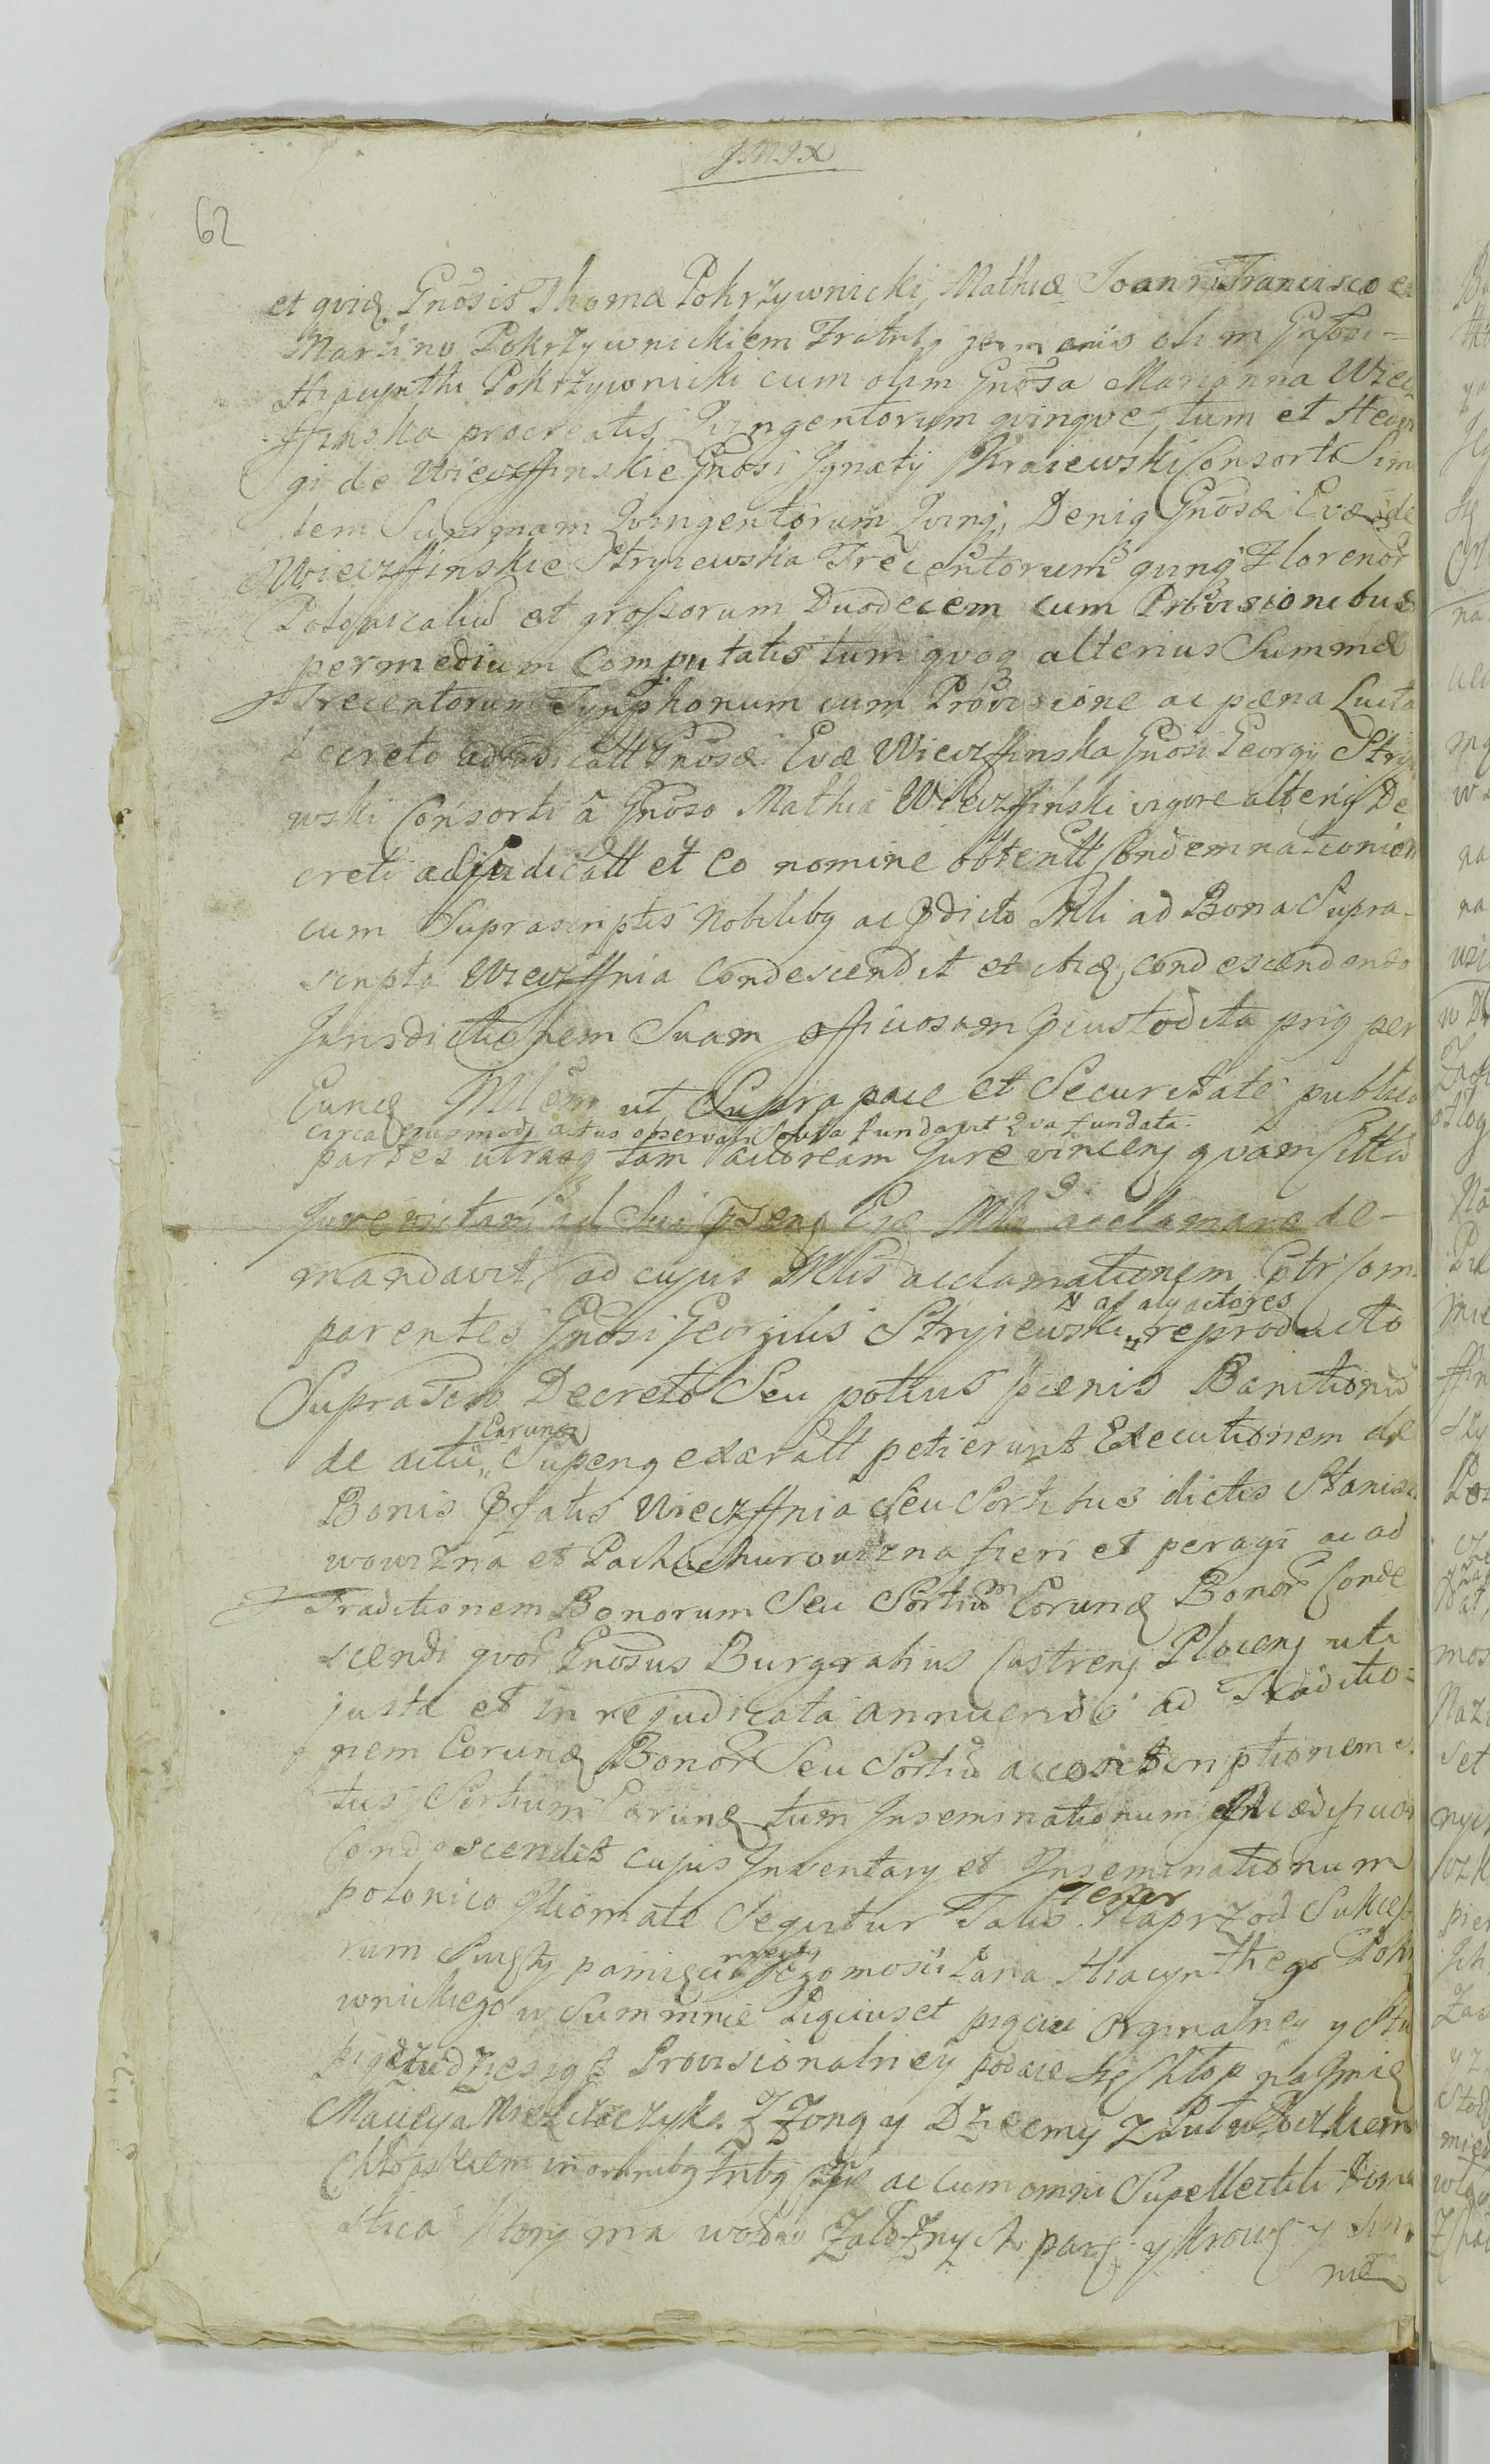 JMJX
62
et qvid. Gnōsis Thomæ Pokrzywnicki, Mathiæ Joanni Francisco et
Martino Pokrzywnickiem Fratrib9 germanis olim Gnosi
Hiacynthi Pokrzywnicki cum olim Gnōsa Marianna Wiecz
ffinska procreatis Qvingentorum qvinqve, tum et Hedvi
gi de Wieczffinskie Gnōsi Ignatÿ Kraiewski Consorti Sim
dem Summam Qvingentorum Qvinq, Deniq Gnōsæ Evæ de
Wieczffinskie Stryiewska Trecentorum qvinq Florenor
Polonicaliu et grossorum Duodecem cum Provisionibus
permedium Computatis tum qvoq alterius Summæ
Trecentorum Tynphonum cum Provisione ac pæna Lucta
Decreto adjudicatt Gnōsæ Evæ Wieczffinska Gnōsi Georgÿ Stryie
wski Consorti â Gnōso Mathia Wieczffinski vigore alterig De
creti adjudicatt et eo nomine obtentt Condemnationion
cum Suprascriptis Nobilib9 ac pdicto Mli ad Bona Supra-
scripta Wieczffnia Condescendit et ibiq condescendendo
Jurisdictionem Suam officiosam pcustodita priq per
Eund Mlem ut Supra pace et Securitate publica
circa ejusmodi actus observan Sevta fundavit Qva fundata
partes utrasq tam actoream Jure vincenq qvam Citta
Jure victam ad Sui psenq Ege Mle acclamare de-
mandavit ad cujus Mlis acclamationem ptr Com
parentes Gnōsi Georgius Stryiewski reproducto
ac alÿ actores
Suprascto Decreto Seu potius pœnis Banitionu
de actu Supenq exaratt petierunt Executionem de
Earund
Bonis pfatis Wieczffnia Seu Sortibus dictis Stanisa
wowizna et Pachuchurowizna fieri et peragi ac ad
Traditionem Bonorum Seu Sortium Eorund Bonor Conde
scendi qvor Gnōsus Burgrabius Castrenq Plocenq uti
justa et in re judicata annuendo ad Traditio-
nem Eorund Bonor Seu Sortiu ac conscriptionem
tus Sortium Earund tum Inseminationum Ædificior
Condescendit cujus Inventarÿ et Inseminationum
polonico Idiomate Seqvitur Talis Naprzod Sukcess
Tenor
rum Swięty pamięci Jegomosci Pana Hiacynthego Pokrzy
wnickiego w Summmie Pięciuset pięciu Orginalney y Stu
pięciudziesiąt Provisionalney podaie się Chłop na Imie
Macieya z Zoną y Dziecmy z
in omnib9 ac cum omni Supellectili Dome
stica Ktory ma wołow Załoznych parę y krowę y
nie